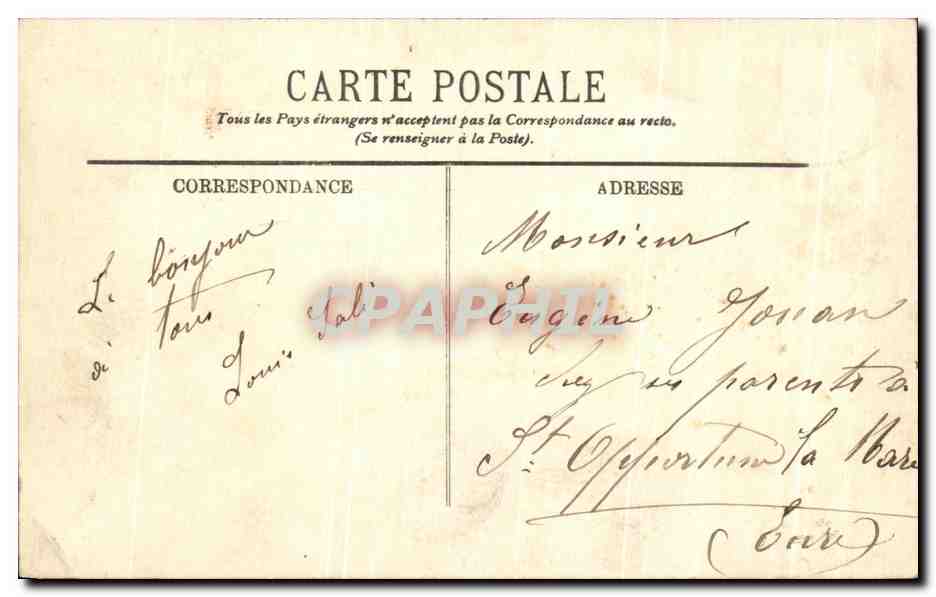 CARTE POSTALE
Tous les Pays étrangers n'acceptent pas la Correspondance au recto.
(Se renseigner à la Poste).
CORRESPONDANCE
Le bonjour
à tous
Louis
ADRESSE
Monsieur
Eugène Jouan
chez ses parents à
St. Opportune la Mare
(Eure)
CPAPHIL